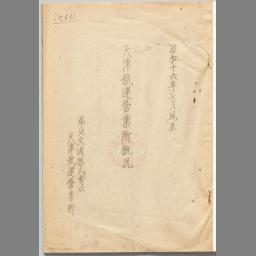 昭和十六年六月現在
天津航運営業所概況
華北交通株式会社
天津航運営業所